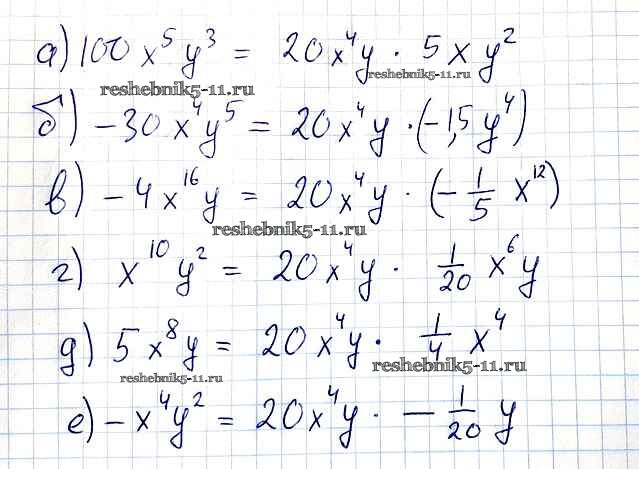 а) 100x⁵y³ = 20x⁴y · 5xy²
reshebnik5-11.ru
reshebnik5-11.ru
б) −30x⁴y⁵ = 20x⁴y · (−1,5y⁴)
в) −4x¹⁶y = 20x⁴y · (−1/5 x¹²)
reshebnik5-11.ru
г) x¹⁰y² = 20x⁴y · 1/20 x⁶y
д) 5x⁸y = 20x⁴y · 1/4 x⁴
reshebnik5-11.ru
reshebnik5-11.ru
е) −x⁴y² = 20x⁴y · −1/20 y